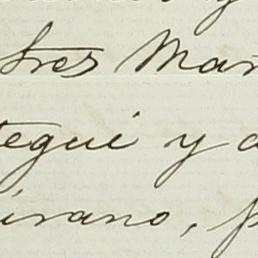 tres Mar
tegui y a
irano, p